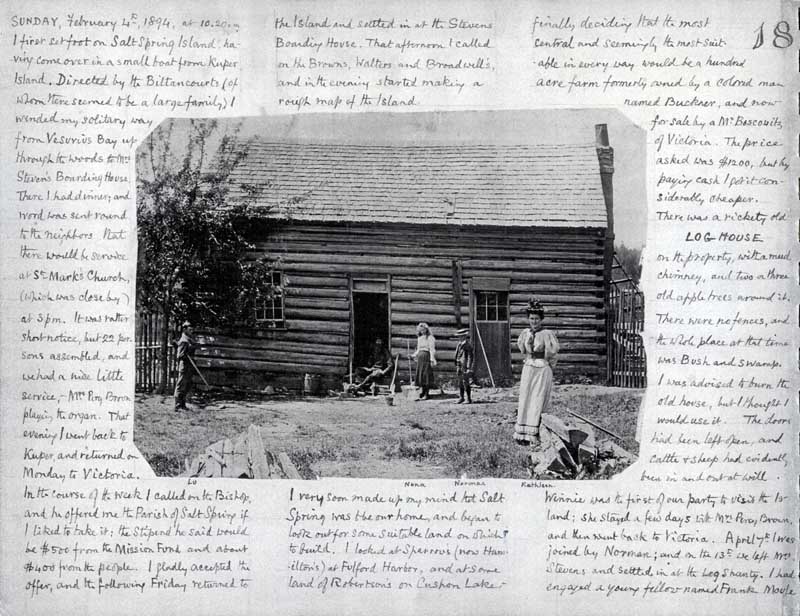 SUNDAY, February 4th, 1894, at 10.20.
I first set foot on Salt Spring Island, ha-
ving come over in a small boat from Kuper
Island. Directed by the Bittancourts (of
whom there seemed to be a large family) I
wended my solitary way
from Vesuvius Bay up
through the woods to Mrs
Steven's Boarding House.
There I had dinner; and
word was sent round
to the neighbors that
there would be service
at St Mark's Church,
(which was close by)
at 3 pm. It was rather
short notice, but 22 per-
sons assembled, and
we had a nice little
service, - Mrs Percy Brown
playing the organ. That
evening I went back to
Kuper, and returned on
Monday to Victoria.
In the course of the week I called on the Bishop,
and he offered me the Parish of Salt Spring if
I liked to take it; the stipend he said would
be $500 from the Mission Fund and about
$400 from the people. I gladly accepted the
offer, and the following Friday returned to
the Island and settled in at the Stevens
Boarding House. That afternoon I called
on the Browns, Walters and Broadwells,
and in the evening started making a
rough map of the Island.
Lu Nona Norman Kathleen
I very soon made up my mind that Salt
Spring was to be our home, and began to
look out for some suitable land on which
to build. I looked at Sparrows (now Ham-
ilton's) at Fulford Harbor, and at some
land of Robertson's on Cushon Lake
finally deciding that the most
central and seemingly the most suit-
able in every way would be a hundred
acre farm formerly owned by a colored man
named Buckner, and now
for sale by a Mr Boscowitz
of Victoria. The price
asked was $1200, but by
paying cash I got it con-
siderably cheaper.
There was a rickety old
LOG HOUSE
on the property, with a mud
chimney, and two or three
old apple trees around it.
There were no fences, and
the whole place at that time
was Bush and swamp.
I was advised to burn the
old house, but I thought I
would use it. The doors
had been left open, and
cattle & sheep had evidently
been in and out at will.
Winnie was the first of our party to visit the Is-
land; she stayed a few days with Mrs Percy Brown,
and then went back to Victoria. April 7th I was
joined by Norman; and on the 13th we left Mrs
Stevens and settled in at the Log Shanty. I had
engaged a young fellow named Frank
18